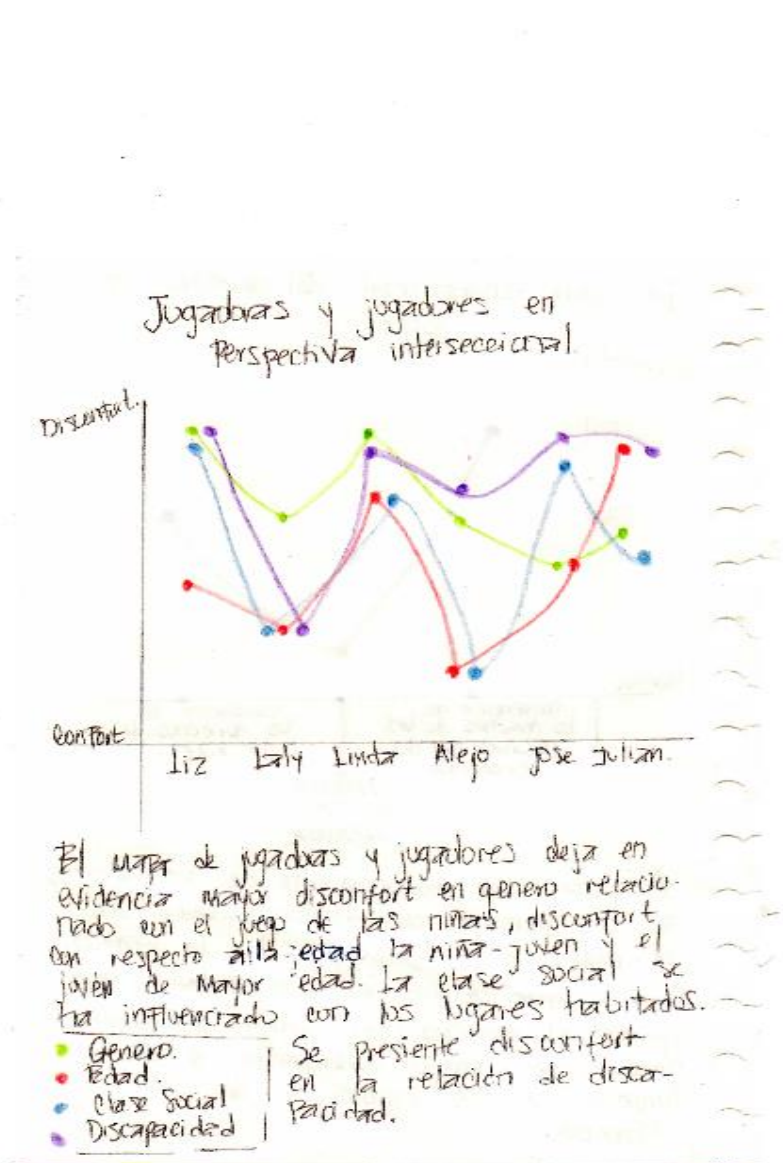 Jugadoras y jugadores en
Perspectiva interseccional
Disconfort.
Confort
Liz Laly Linda Alejo Jose Julian.
El mapa de jugadoras y jugadores deja en
evidencia mayor disconfort en genero relacio-
nado con el juego de las niñas, disconfort
con respecto a la edad la niña-joven y el
joven de mayor edad. La clase social se
ha influenciado con los lugares habitados.
Genero.
Edad.
Clase Social
Discapacidad
Se presiente disconfort
en la relación de disca-
pacidad.